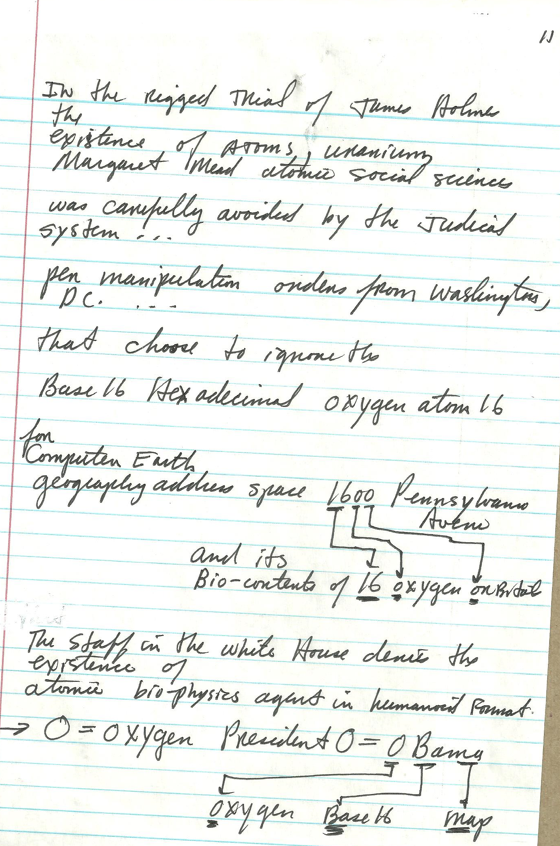 11
In the rigged Trial of James Holmes
the
existence of atoms, uranium,
Margaret Mead atomic social science
was carefully avoided by the Judical
system ...
pen manipulation orders from Washington,
DC. ...
that choose to ignore the
Base 16 Hexadecimal oxygen atom 16
for
Computer Earth
geography address space 1600 Pennsylvania
Avenu
and its
Bio-contents of 16 oxygen orbital
The staff in the white House denies the
existence of
atomic bio-physics agent in humanoid format.
→ O = oxygen President O = OBama
oxygen Base 16 map